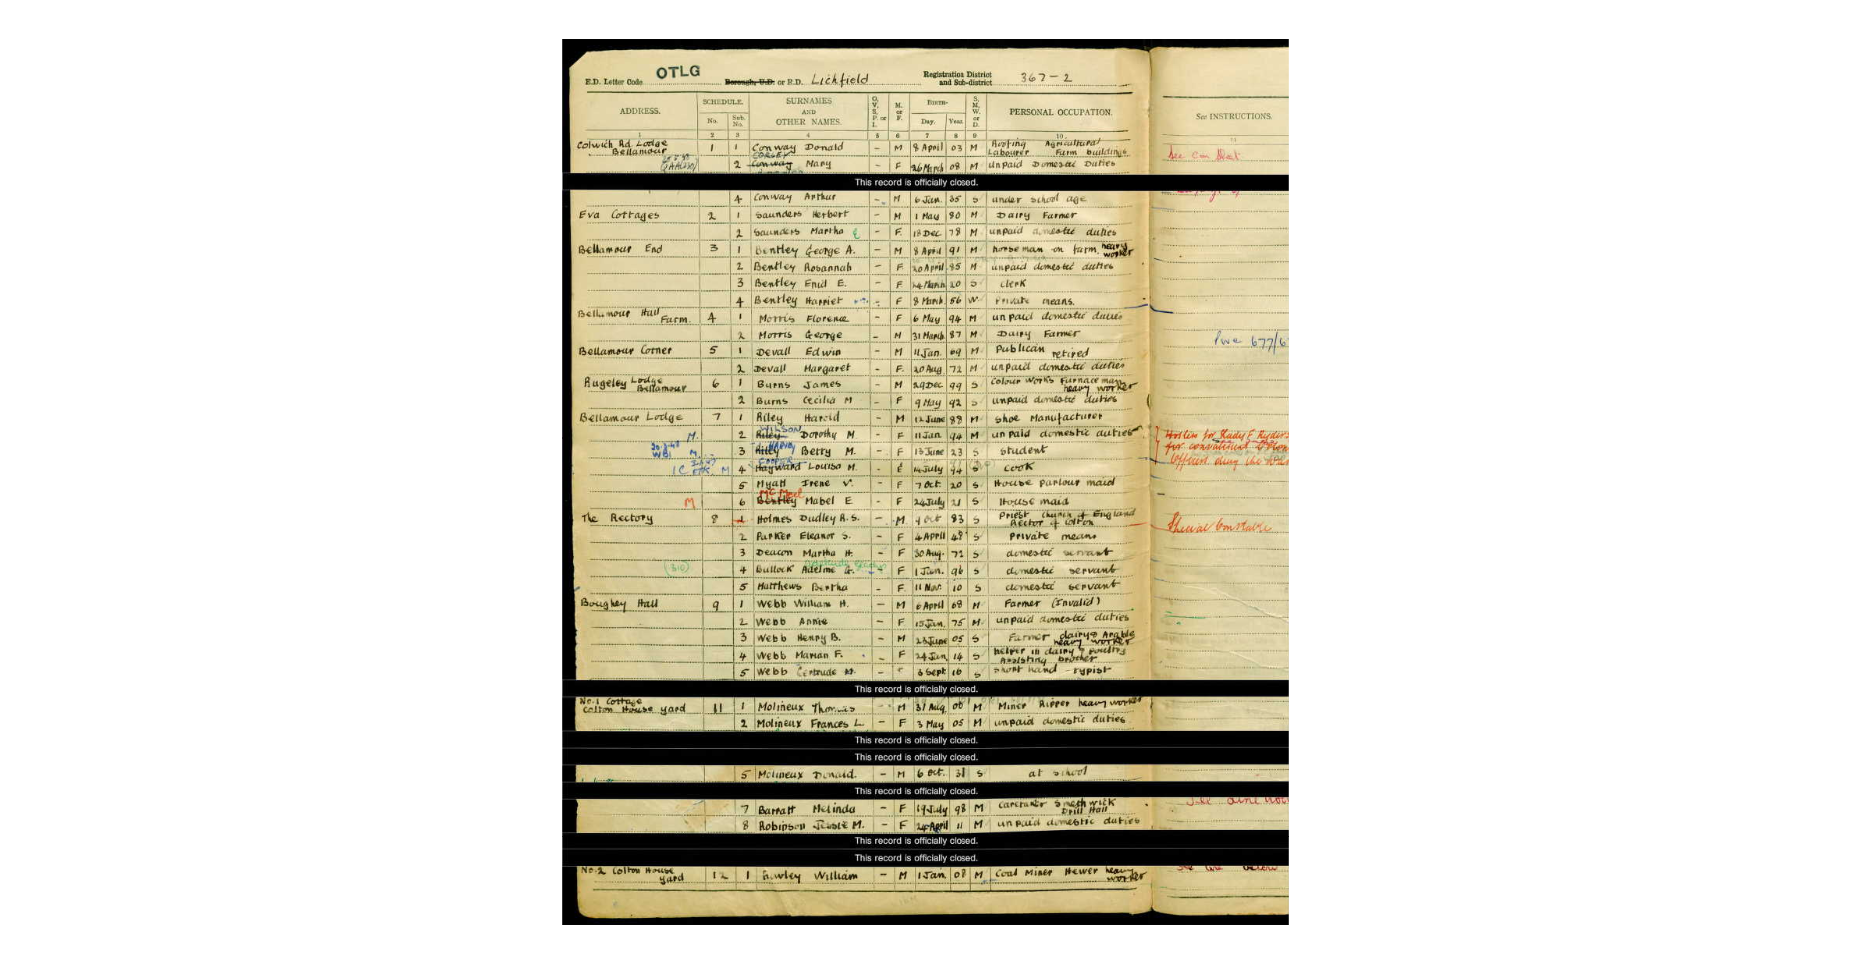 E.D. Letter Code OTLG Borough, U.D. or R.D. Lichfield Registration District and Sub-district 367-2
ADDRESS. SCHEDULE. No. Sub. No. SURNAMES AND OTHER NAMES. O. V. S. P. or I. M. or F. BIRTH- Day. Year. S. M. W. or D. PERSONAL OCCUPATION. See INSTRUCTIONS.
1 2 3 4 5 6 7 8 9 10
Colwich Rd. Lodge Bellamour 1 1 Conway Donald - M 8 April 03 M Roofing Agricultural Labourer Farm buildings
2 Conway Mary F 26 March 08 M unpaid Domestic Duties
This record is officially closed.
4 Conway Arthur - M 6 Jan. 35 S under school age
Eva Cottages 2 1 Saunders Herbert - M 1 May 80 M Dairy Farmer
2 Saunders Martha - F 18 Dec 78 M unpaid domestic duties
Bellamour End 3 1 Bentley George A. - M 8 April 91 M horseman on farm heavy worker
2 Bentley Rosannah - F 20 April 85 M unpaid domestic duties
3 Bentley Enid E. - F 24 March 20 S clerk
4 Bentley Harriet - F 8 March 56 W Private means.
Bellamour Hall Farm. 4 1 Morris Florence - F 6 May 94 M unpaid domestic duties
2 Morris George - M 31 March 87 M Dairy Farmer
Bellamour Corner 5 1 Devall Edwin - M 11 Jan. 69 M Publican retired
2 Devall Margaret - F 20 Aug 72 M unpaid domestic duties
Rugeley Lodge Bellamour 6 1 Burns James - M 29 Dec 99 S Colour Works Furnace man heavy worker
2 Burns Cecilia M - F 9 May 92 S unpaid domestic duties
Bellamour Lodge 7 1 Riley Harold - M 12 June 88 M Shoe Manufacturer
M. 2 Riley WILSON Dorothy M. - F 11 Jan. 94 M unpaid domestic duties
3 Riley Berry M. - F 13 June 23 S student
4 Hayward COOPER Louisa M. - F July S cook
5 Hyatt Irene V. - F 7 Oct. 20 S House parlour maid
M 6 Bentley Mabel E - F 24 July 21 S House maid
The Rectory 8 1 Holmes Dudley R.S. - M 9 Oct 83 S Priest Church of England Rector of Colton
2 Parker Eleanor S. - F 4 April 48 S Private means
3 Deacon Martha H. - F 30 Aug. 72 S domestic servant
4 Bullock Adeline G. - F 1 Jan. 96 S domestic servant
5 Matthews Bertha - F 11 Nov 10 S domestic servant
Boughey Hall 9 1 Webb William H. - M 6 April 68 M Farmer (Invalid)
2 Webb Annie - F 15 Jan. 75 M unpaid domestic duties
3 Webb Henry B. - M 23 June 05 S Farmer dairy & Arable heavy worker
4 Webb Marian F. - F 24 Jan 14 S helper in dairy & poultry Assisting brother
5 Webb Gertrude M. - F 3 Sept 16 S Short hand - typist
This record is officially closed.
No.1 Cottage Colton House yard 11 1 Molineux Thomas - M 31 Aug. 00 M Miner Ripper heavy worker
2 Molineux Frances L. - F 3 May 05 M unpaid domestic duties
This record is officially closed.
This record is officially closed.
5 Molineux Donald. - M 6 Oct. 31 S at school
This record is officially closed.
7 Barratt Melinda - F 19 July 98 M caretaker Smethwick Drill Hall
8 Robinson Jessie M. - F 24 April 11 M unpaid domestic duties
This record is officially closed.
This record is officially closed.
No.2 Colton House yard 12 1 William - M 1 Jan. 08 M Coal Miner Hewer heavy worker